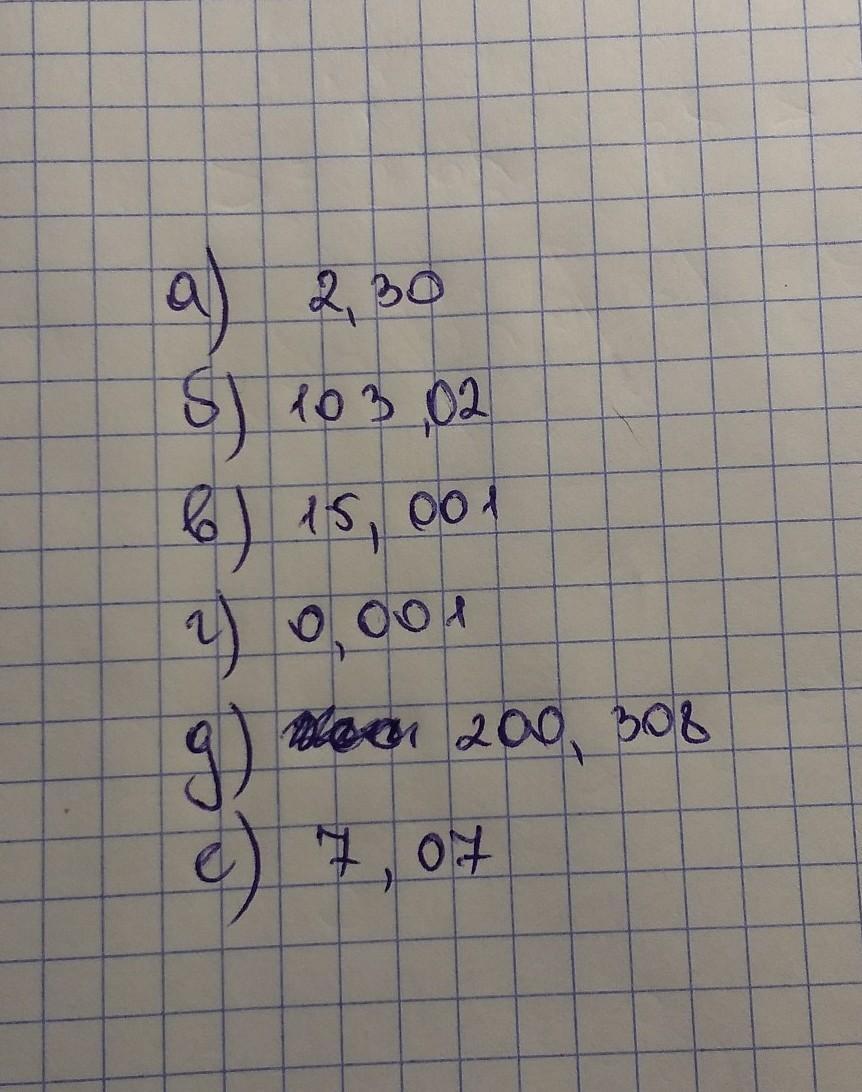 а) 2,30
б) 103,02
в) 15,001
г) 0,001
д) 200,308
е) 7,07